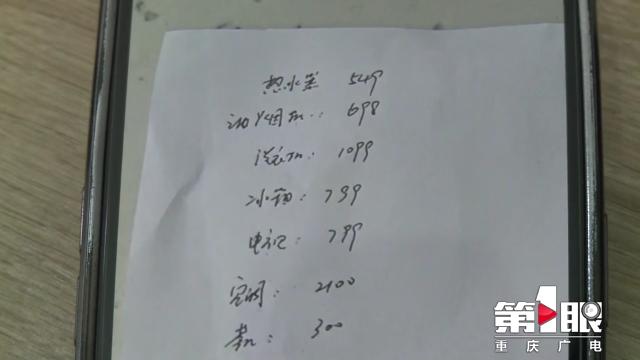 热水器 549
油烟机: 698
洗衣机: 1099
冰箱: 799
电视: 799
空调: 2100
300
第1眼
重庆广电